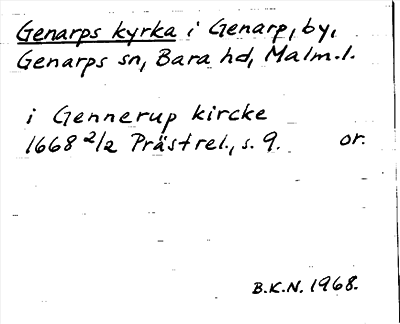 Genarps kyrka i Genarp, by,
Genarps sn, Bara hd, Malm.l.
i Gennerup kircke
1668 2/2 Prästrel., s. 9. or.
B.K.N. 1968.